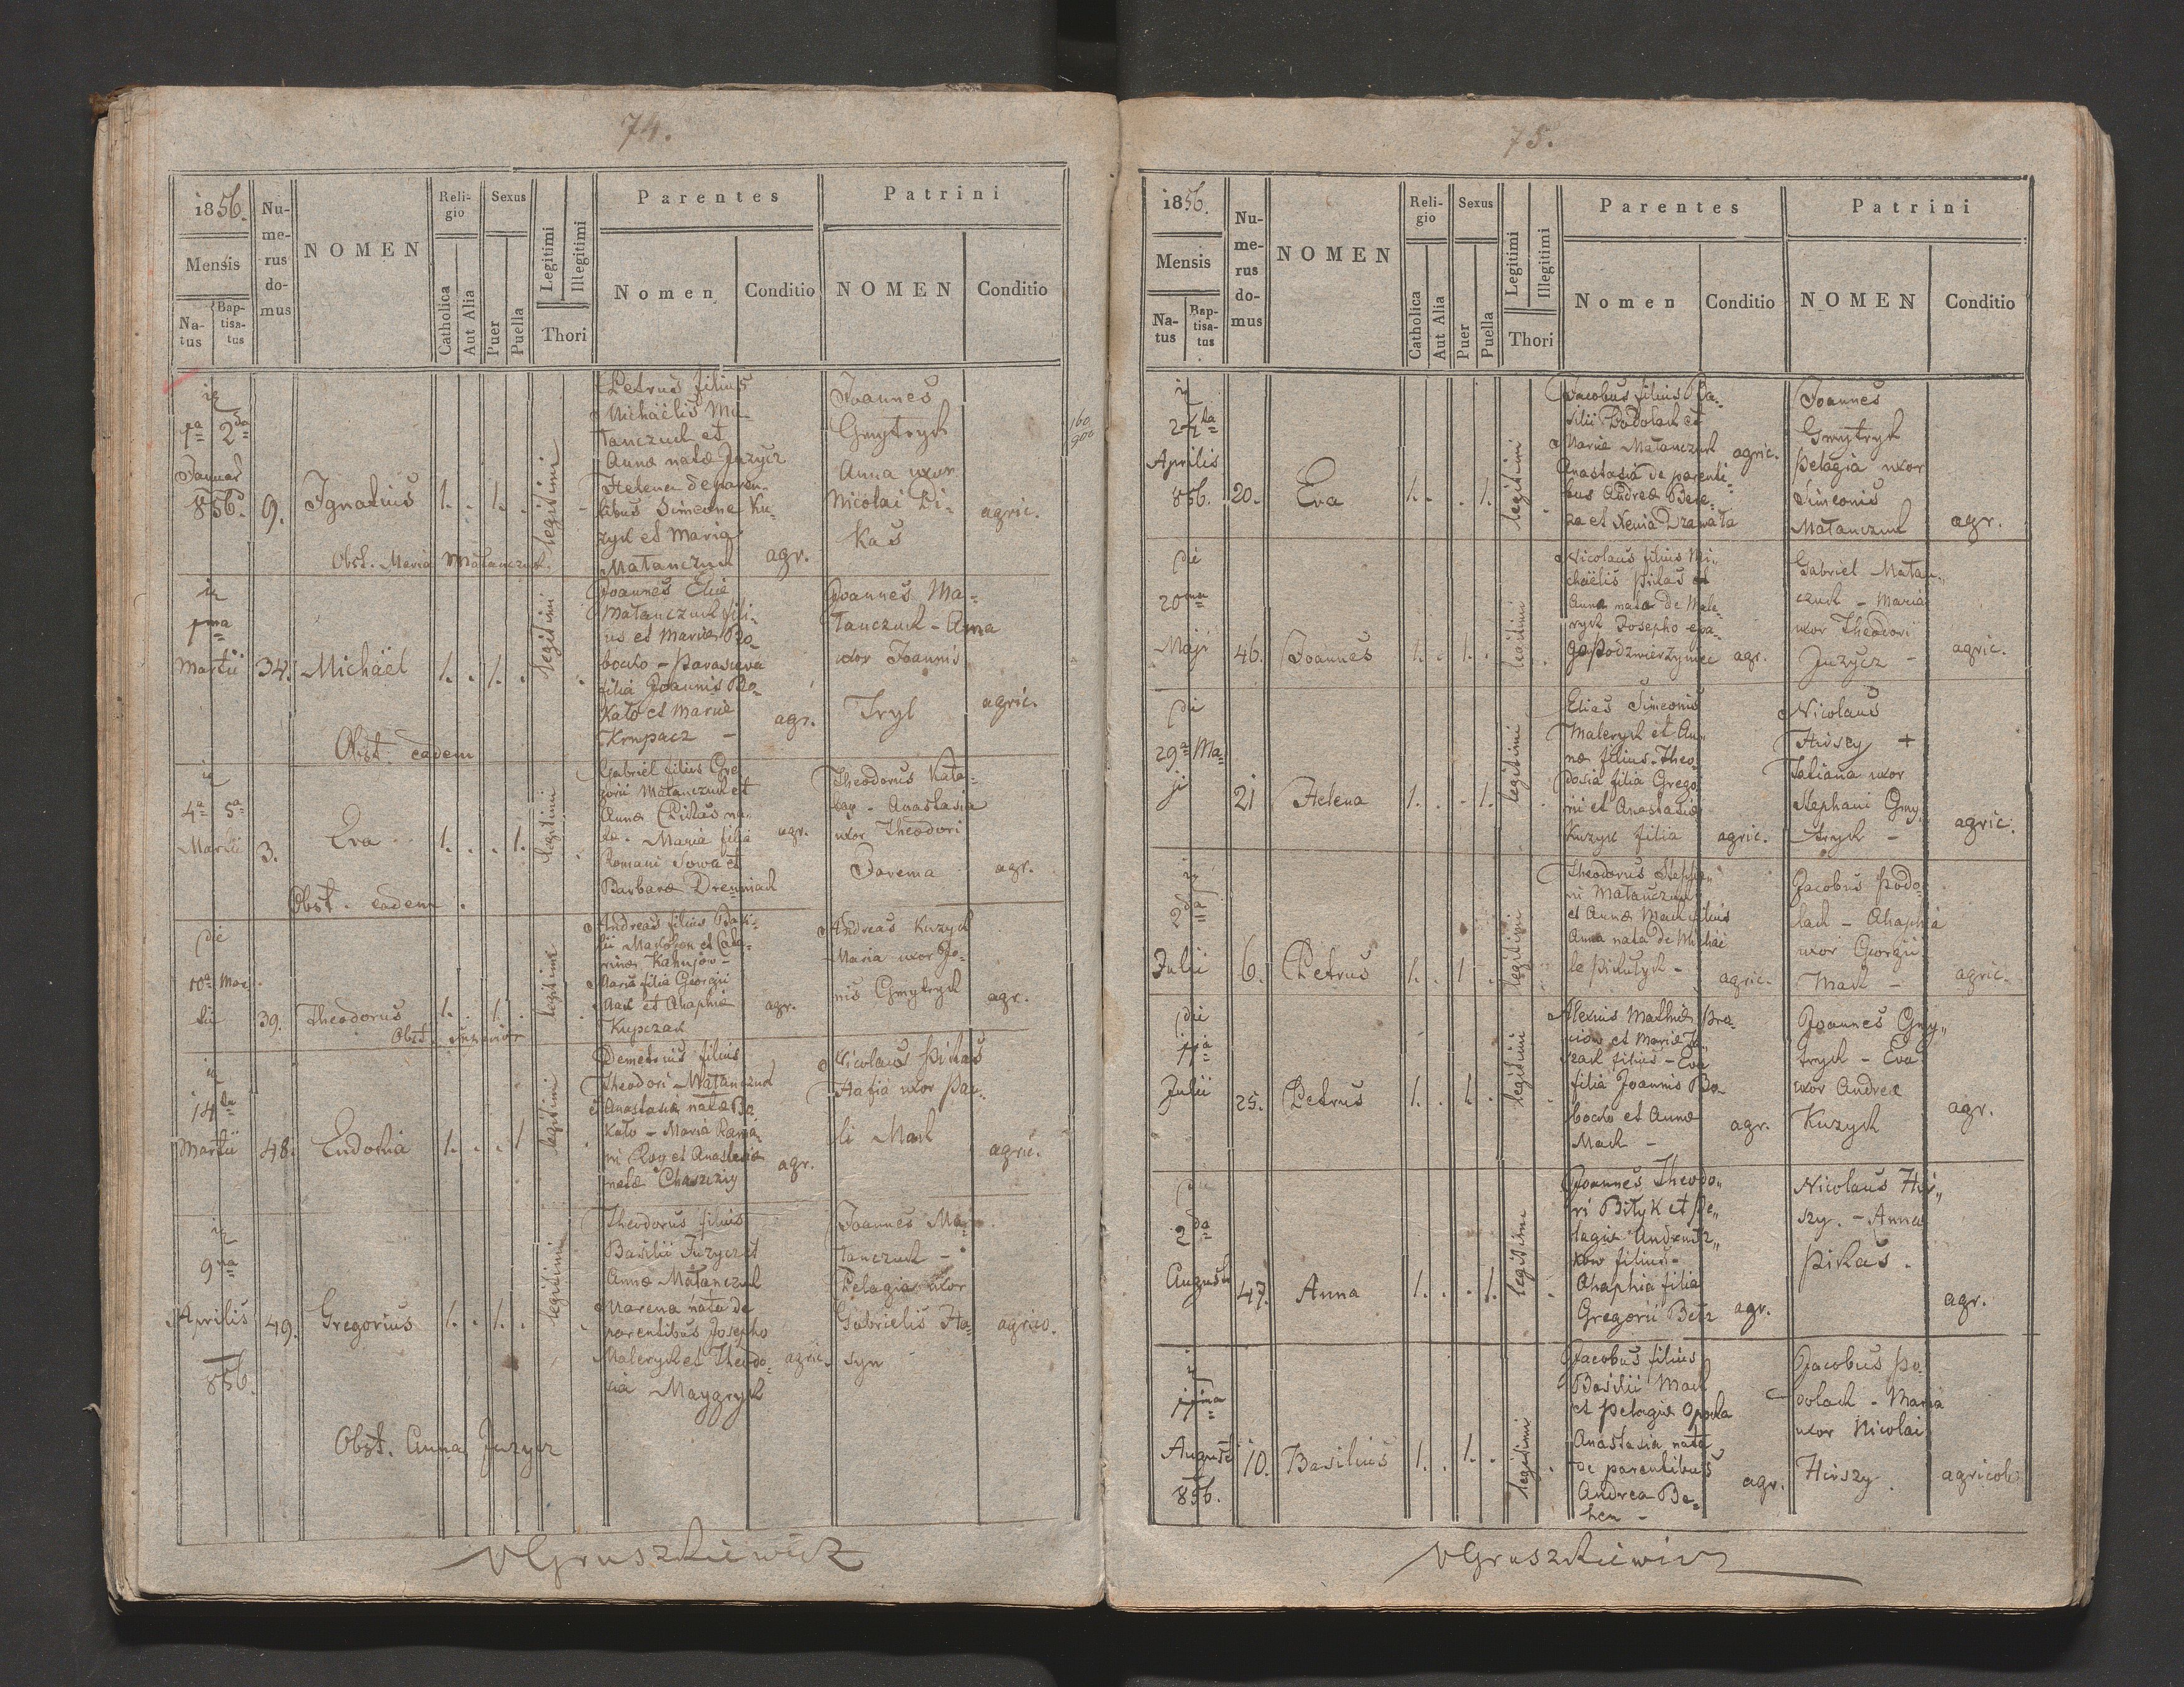 74.
1856.
Mensis
Na-
tus
Bap-
tisa-
tus
Nu-
me-
rus
do-
mus
NOMEN
Reli-
gio
Catholica
Aut Alia
Sexus
Puer
Puella
Legitimi
Illegitimi
Thori
Parentes
Nomen
Conditio
Patrini
NOMEN
Conditio
1a 2da
Januar
856.
9.
Ignatius
1. . 1. .
legitimi
Petrus filius
Michaëlis Ma-
tanczuch et
Annæ natæ Juzycz
Helena de paren-
tibus Simeone Ku-
zyk et Maria
Matanczuch
agr.
Joannes
Gmytryk
Anna uxor
Nicolai Pi-
kas
agric.
Obst. Maria Matanczuch
1ma
Martii
34.
Michaël
1. . 1. .
legitimi
Joannes Eliæ
Matanczuch fili-
us et Mariæ Bo-
bocko - Parasceva
filia Joannis Bo-
kato et Mariæ
Krupacz -
agr.
Joannes Ma-
tanczuch - Anna
uxor Joannis
Tryl
agric.
Obst. eadem
4a 5a
Martii
3.
Eva
1. . . 1.
legitimi
Gabriel filius Gre
gorii Matanczuch et
Annæ Pikas na-
ta. Maria filia
Romani Sowa et
Barbaræ Drewniack
agr.
Theodorus Kata-
Anastasia
uxor Theodori
Jarema
agr.
Obst. eadem.
die
10a Mar
tii
39.
Theodorus
1. . 1. .
legitimi
Andreas filius Basi-
lii et Cata-
rinæ
Maria filia Georgii
Mack et Ahaphiæ
Kupczak
agr.
Andreas Kuzyck
Maria uxor Jo-
nis Gmytryck
agr.
Obst. superior
14ta
Martii
48.
Eudokia
1. . . 1
legitimi
Demetrius filius
Theodori Matanczuck
et Anastasiæ natæ Bo
kato - Maria Roma-
ni et Anastasiæ
natæ
agr.
Nicolaus Pikas
Hafia uxor Pau-
li Mack
agric.
9na
Aprilis
856.
49.
Gregorius
1. . 1. .
legitimi
Theodorus filius
Basilii Juzycz et
Annæ Matanczuck
Marena nata de
parentibus Josepho
Maleryck et Theodo-
sia
agric.
Joannes Ma-
tanczuck -
Pelagia uxor
Gabrielis Ha-
syn
agrico.
Obst. Anna Juzycz
VGruszkiewicz
75.
1856.
Mensis
Na-
tus
Bap-
tisa-
tus
Nu-
me-
rus
do-
mus
NOMEN
Reli-
gio
Catholica
Aut Alia
Sexus
Puer
Puella
Legitimi
Illegitimi
Thori
Parentes
Nomen
Conditio
Patrini
NOMEN
Conditio
Aprilis
856.
20.
Eva
1. . . 1.
legitimi
Jacobus filius Ba-
silii Podolack et
Mariæ Matanczuck
Anastasia de parenti-
bus Andreæ Bere-
za et Xenia
agric.
Joannes
Gmytryck
Pelagia uxor
Simeonis
Matanczuck
agr.
die
20ma
Maji
46.
Joannes
1. . 1. .
legitimi
Nicolaus filius Mi-
chaëlis Pikas et
Anna nata de Male-
ryck Josepho
Podzwierzyniec
agr.
Gabriel Matan-
czuck - Maria
uxor Theodori
Juzycz -
agric.
die
29a Ma-
ji
21
Helena
1. . . 1.
legitimi
Elias Simeonis
Maleryck et An-
næ filius. Theo-
dosia filia Grego-
rii et Anastasiæ
Kuzyk filia
agric.
Nicolaus
Hirsey +
Tatiana uxor
Stephani Gmy
tryck -
agric.
2da
Julii
6.
Petrus
1. . 1 .
legitimi
Theodorus Stepha-
ni Matanczuck
et Annæ Mack filius
Anna nata de Michaë
le -
agric.
Jacobus Podo-
lack - Ahaphia
uxor Georgii
Mack -
agric.
die
11a
Julii
25.
Petrus
1. . 1. .
legitimi
Alexius Mathiæ
et Mariæ
filius - Eva
filia Joannis Bo-
bocko et Annæ
Mack -
agr.
Joannes Gmy-
tryck - Eva
uxor Andreæ
Kuzyck
agr.
die
2da
Augusti
47.
Anna
1. . . 1.
legitimi
Joannes Theodo-
ri Bityk et Pe-
lagiæ
filius -
Ahaphia filia
Gregorii
agr.
Nicolaus Hir-
szy. - Anna
Pikas.
agr.
11ma
August
856.
10.
Basilius
1. . 1. .
legitimi
Jacobus filius
Basilii Mack
et Pelagiæ
Anastasia nata
de parentibus
Andrea
agr.
Jacobus Po-
dolack - Maria
uxor Nicolai
Hirszy
agricolæ
VGruszkiewicz